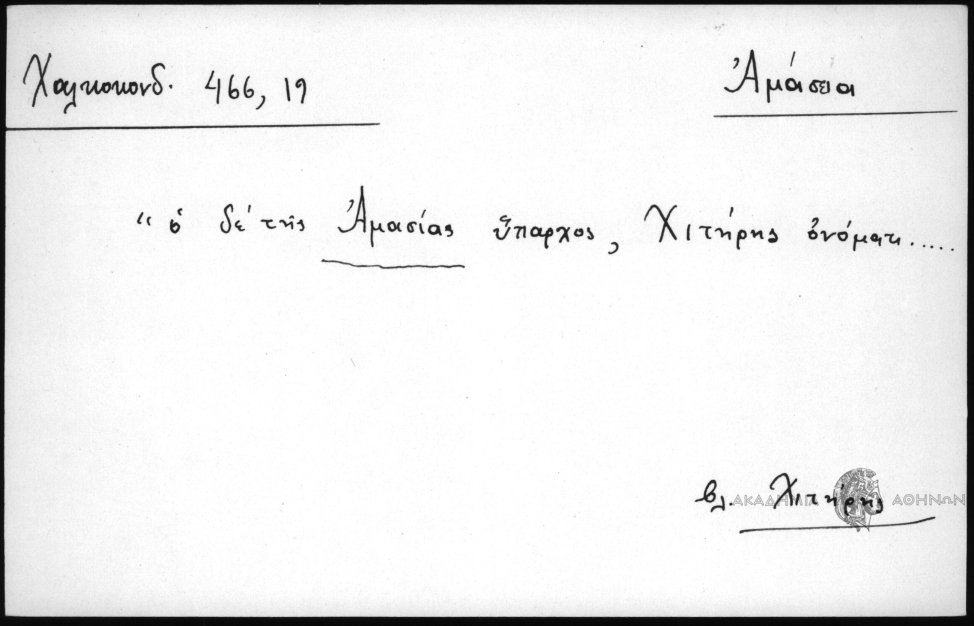 Χαλκοκονδ. 466, 19
Ἀμάσεια
“ ὁ δὲ τῆς Ἀμασίας ὕπαρχος, Χιτήρης ὀνόματι.....
βλ. Χιτήρης
ΑΚΑΔΗΜΙΑ ΑΘΗΝΩΝ